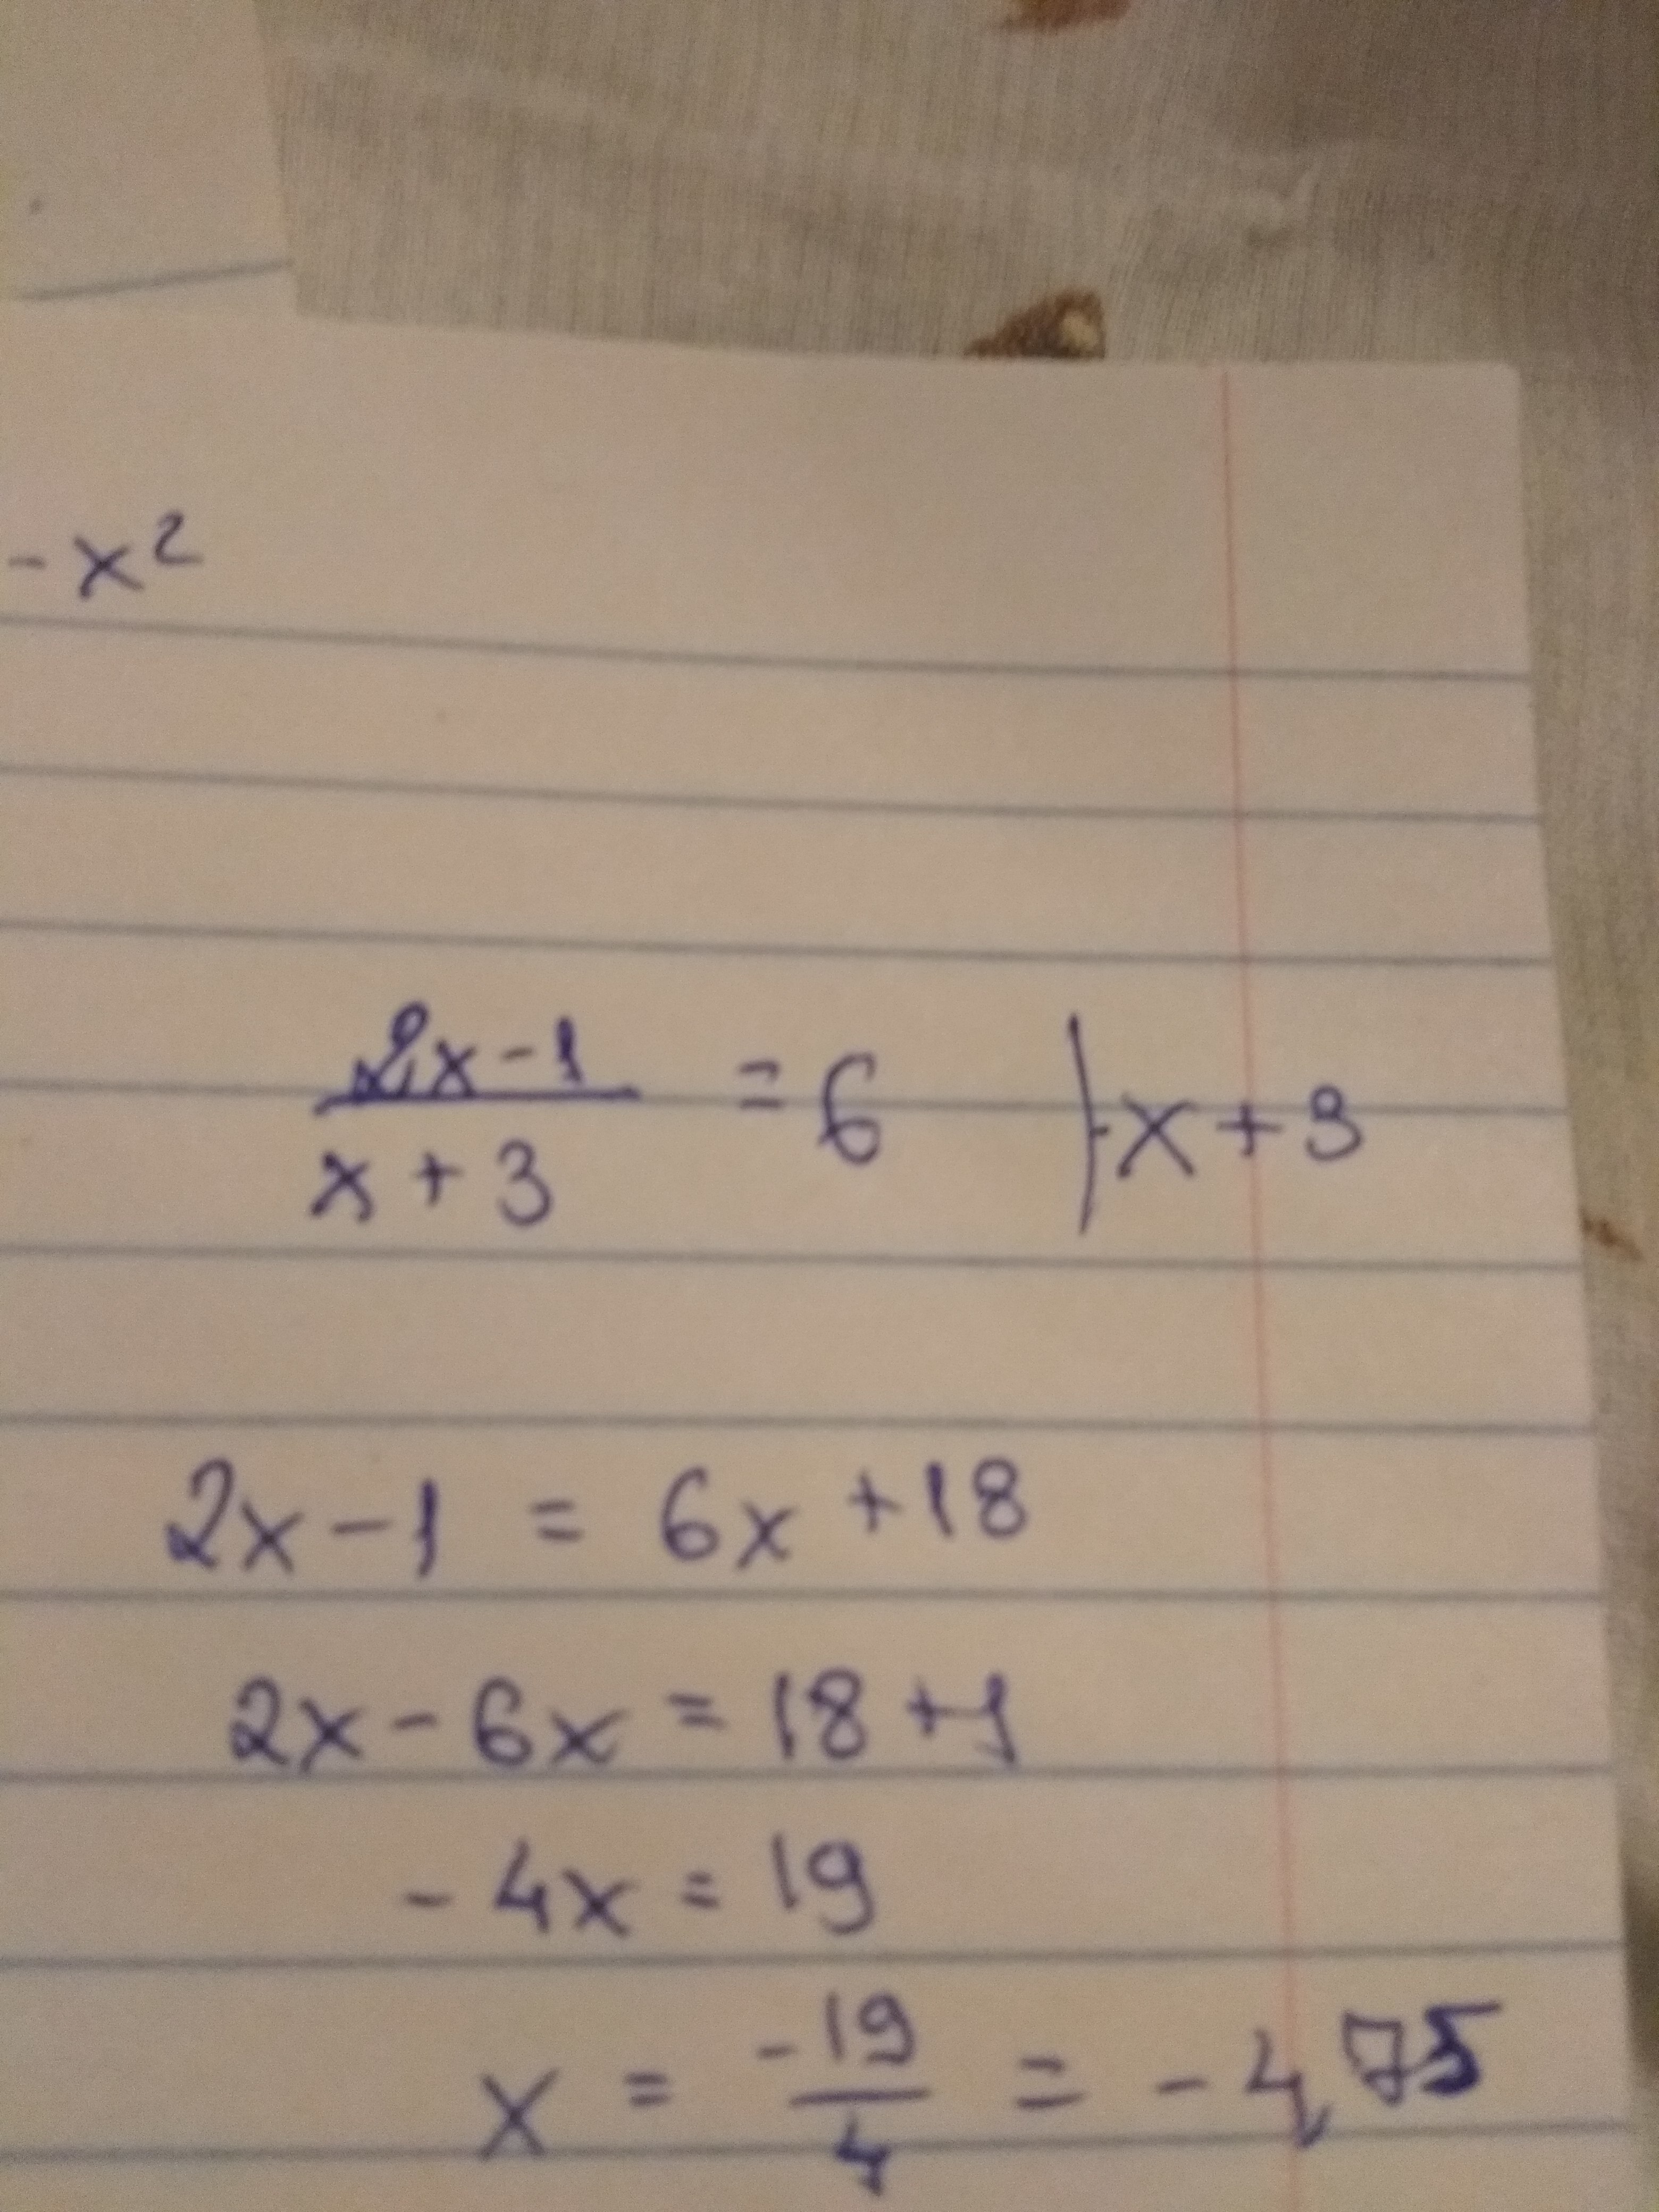 - x²
(2x - 1)/(x + 3) = 6 | · x + 3
2x - 1 = 6x + 18
2x - 6x = 18 + 1
- 4x = 19
x = -19/4 = - 4,75